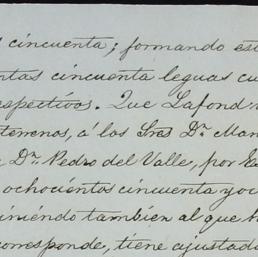 cincuenta; formando est
ntas cincuenta leguas cu
espectivos. Que Lafond
terrenos, á los Sres Dn. Man
Dn. Pedro del Valle, por
ochocientos cincuenta y oc
iniéndo tambien al que h
corresponde, tiene ajustad